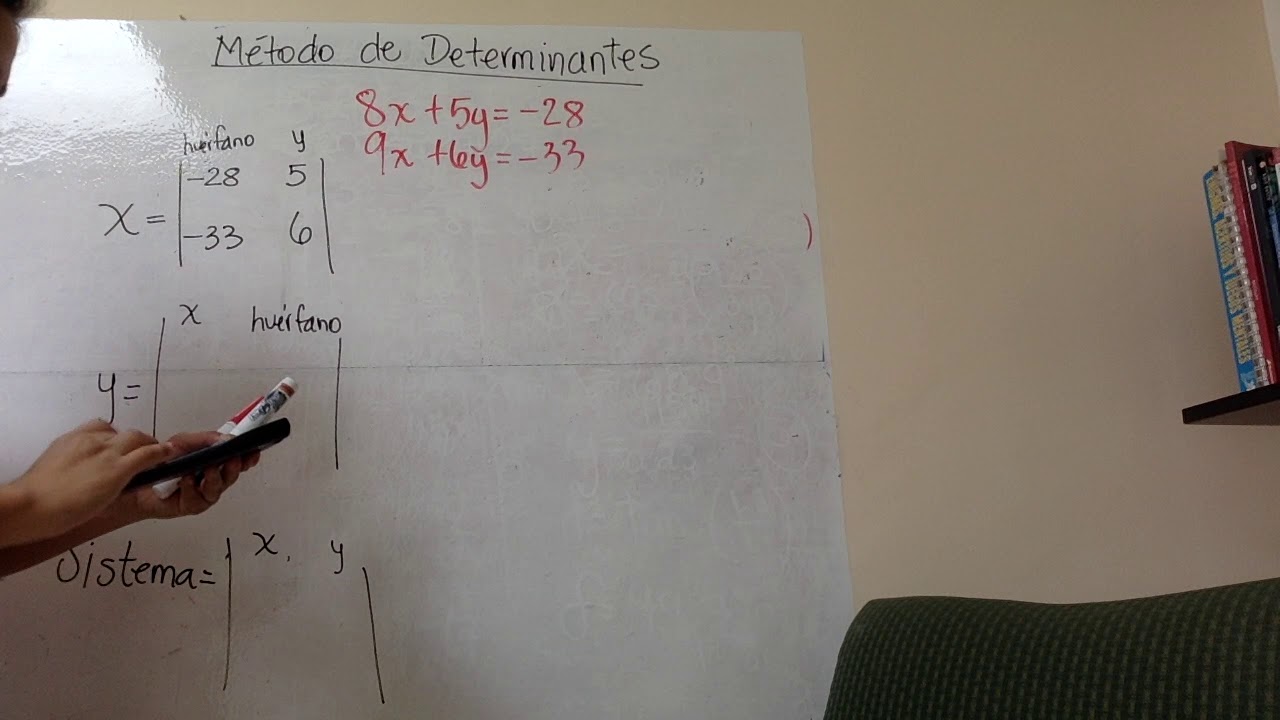 Método de Determinantes
8x + 5y = -28
9x + 6y = -33
huérfano y
-28 5
x =
-33 6
x huérfano
y =
x, y
Sistema =